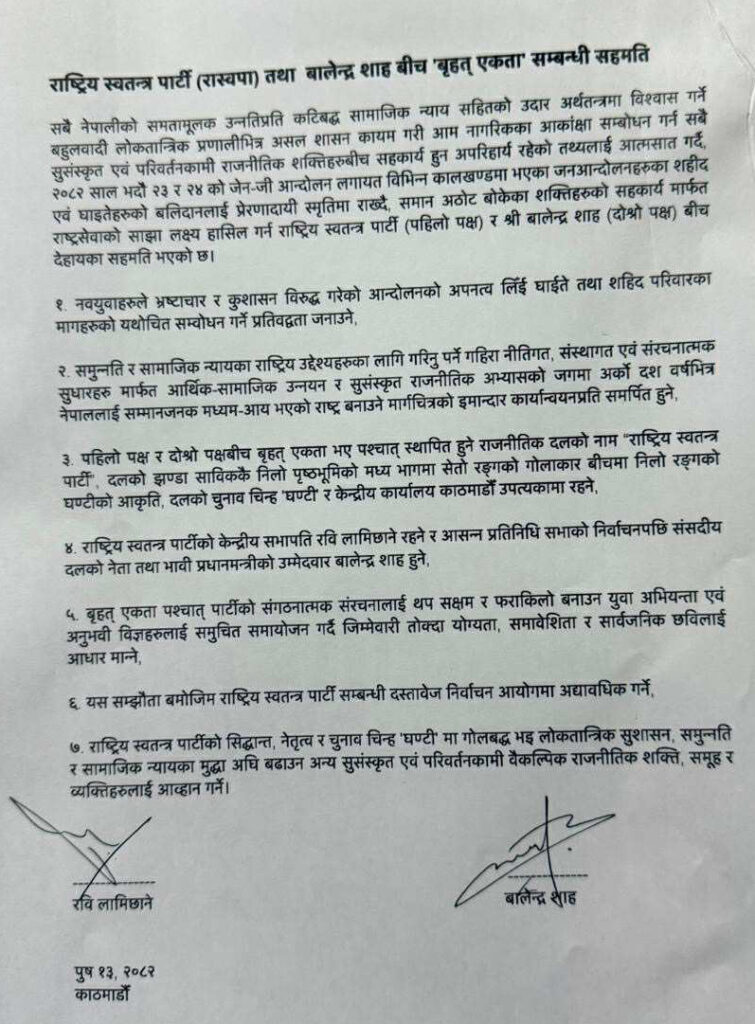 राष्ट्रिय स्वतन्त्र पार्टी (रास्वपा) तथा बालेन्द्र शाह बीच 'बृहत् एकता' सम्बन्धी सहमति
सबै नेपालीको समतामूलक उन्नतिप्रति कटिबद्ध सामाजिक न्याय सहितको उदार अर्थतन्त्रमा विश्वास गर्ने
बहुलवादी लोकतान्त्रिक प्रणालीभित्र असल शासन कायम गरी आम नागरिकका आकांक्षा सम्बोधन गर्न सबै
सुसंस्कृत एवं परिवर्तनकामी राजनीतिक शक्तिहरुबीच सहकार्य हुन अपरिहार्य रहेको तथ्यलाई आत्मसात गर्दै,
२०८२ साल भदौ २३ र २४ को जेन-जी आन्दोलन लगायत विभिन्न कालखण्डमा भएका जनआन्दोलनहरुका शहीद
एवं घाइतेहरुको बलिदानलाई प्रेरणादायी स्मृतिमा राख्दै, समान अठोट बोकेका शक्तिहरुको सहकार्य मार्फत
राष्ट्रसेवाको साझा लक्ष्य हासिल गर्न राष्ट्रिय स्वतन्त्र पार्टी (पहिलो पक्ष) र श्री बालेन्द्र शाह (दोश्रो पक्ष) बीच
देहायका सहमति भएको छ।
१. नवयुवाहरुले भ्रष्टाचार र कुशासन विरुद्ध गरेको आन्दोलनको अपनत्व लिँई घाईते तथा शहिद परिवारका
मागहरुको यथोचित सम्बोधन गर्ने प्रतिवद्वता जनाउने,
२. समुन्नति र सामाजिक न्यायका राष्ट्रिय उद्देश्यहरुका लागि गरिनु पर्ने गहिरा नीतिगत, संस्थागत एवं संरचनात्मक
सुधारहरु मार्फत आर्थिक-सामाजिक उन्नयन र सुसंस्कृत राजनीतिक अभ्यासको जगमा अर्को दश वर्षभित्र
नेपाललाई सम्मानजनक मध्यम-आय भएको राष्ट्र बनाउने मार्गचित्रको इमान्दार कार्यान्वयनप्रति समर्पित हुने,
३. पहिलो पक्ष र दोश्रो पक्षबीच बृहत् एकता भए पश्चात् स्थापित हुने राजनीतिक दलको नाम "राष्ट्रिय स्वतन्त्र
पार्टी", दलको झण्डा साविककै निलो पृष्ठभूमिको मध्य भागमा सेतो रङ्गको गोलाकार बीचमा निलो रङ्गको
घण्टीको आकृति, दलको चुनाव चिन्ह 'घण्टी' र केन्द्रीय कार्यालय काठमाडौँ उपत्यकामा रहने,
४. राष्ट्रिय स्वतन्त्र पार्टीको केन्द्रीय सभापति रवि लामिछाने रहने र आसन्न प्रतिनिधि सभाको निर्वाचनपछि संसदीय
दलको नेता तथा भावी प्रधानमन्त्रीको उम्मेदवार बालेन्द्र शाह हुने,
५. बृहत् एकता पश्चात् पार्टीको संगठनात्मक संरचनालाई थप सक्षम र फराकिलो बनाउन युवा अभियन्ता एवं
अनुभवी विज्ञहरुलाई समुचित समायोजन गर्दै जिम्मेवारी तोक्दा योग्यता, समावेशिता र सार्वजनिक छविलाई
आधार मान्ने,
६. यस सम्झौता बमोजिम राष्ट्रिय स्वतन्त्र पार्टी सम्बन्धी दस्तावेज निर्वाचन आयोगमा अद्यावधिक गर्ने,
७. राष्ट्रिय स्वतन्त्र पार्टीको सिद्धान्त, नेतृत्व र चुनाव चिन्ह 'घण्टी' मा गोलबद्ध भइ लोकतान्त्रिक सुशासन, समुन्नति
र सामाजिक न्यायका मुद्धा अघि बढाउन अन्य सुसंस्कृत एवं परिवर्तनकामी वैकल्पिक राजनीतिक शक्ति, समूह र
व्यक्तिहरुलाई आव्हान गर्ने।
रवि लामिछाने
बालेन्द्र शाह
पुष १३, २०८२
काठमाडौँ